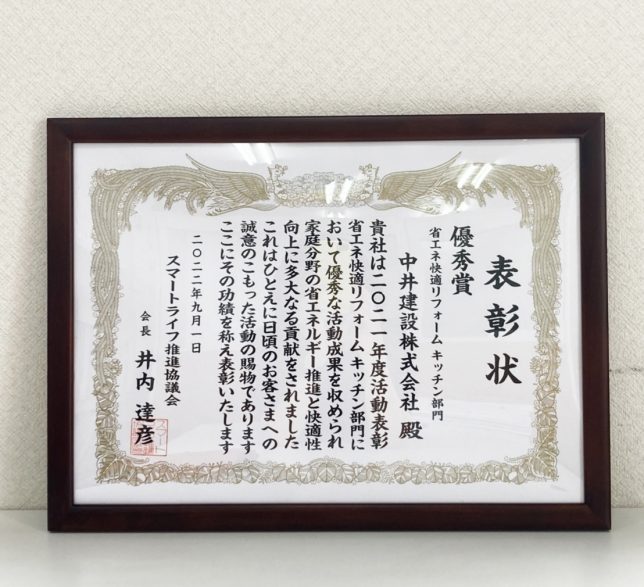 表彰状
優秀賞
省エネ快適リフォーム キッチン部門
中井建設株式会社 殿
貴社は二〇二一年度活動表彰
省エネ快適リフォーム キッチン部門に
おいて優秀な活動成果を収められ
家庭分野の省エネルギー推進と快適性
向上に多大なる貢献をされました
これはひとえに日頃のお客さまへの
誠意のこもった活動の賜物であります
ここにその功績を称え表彰いたします
二〇二二年九月一日
スマートライフ推進協議会
会長 井内 達彦